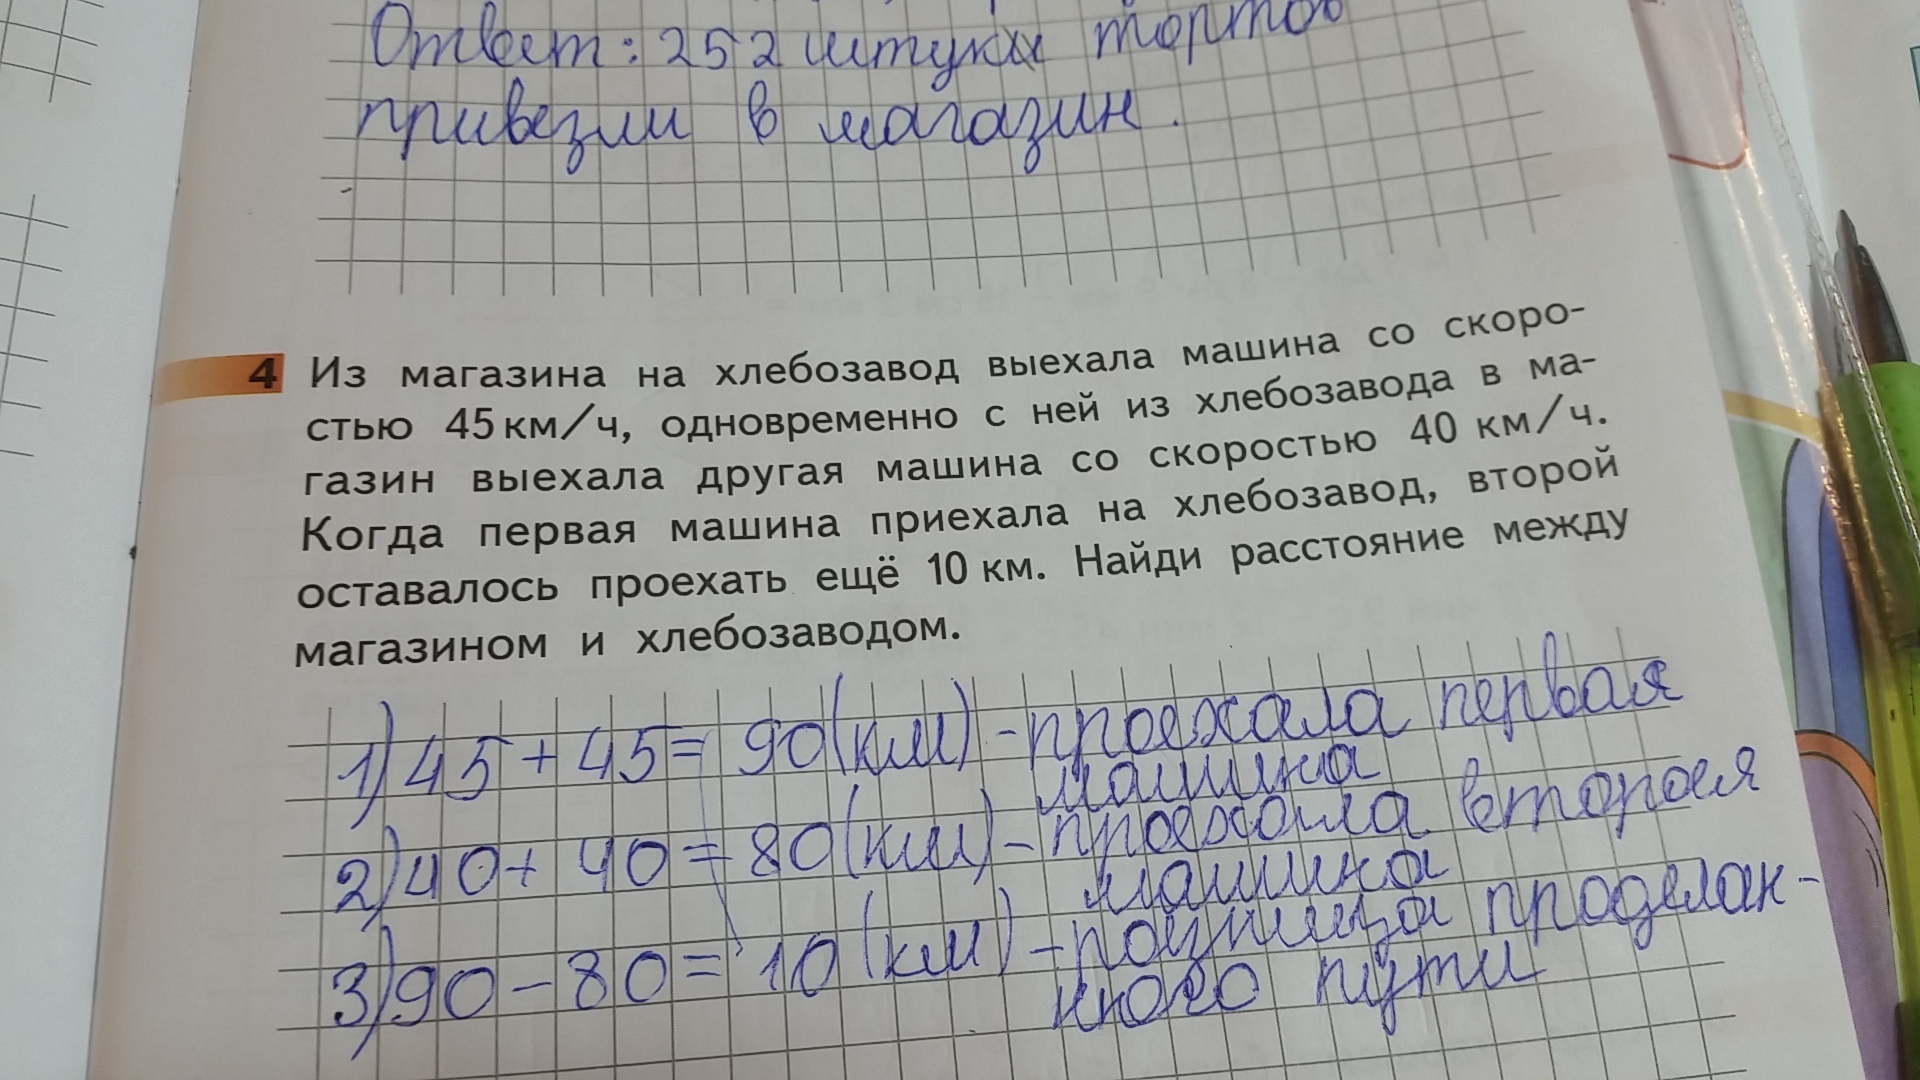 Ответ: 252 штуки тортов
привезли в магазин.
4 Из магазина на хлебозавод выехала машина со скоро-
стью 45 км/ч, одновременно с ней из хлебозавода в ма-
газин выехала другая машина со скоростью 40 км/ч.
Когда первая машина приехала на хлебозавод, второй
оставалось проехать ещё 10 км. Найди расстояние между
магазином и хлебозаводом.
1) 45 + 45 = 90 (км) - проехала первая
машина
2) 40 + 40 = 80 (км) - проехала вторая
машина
3) 90 - 80 = 10 (км) - разница проделан-
ного пути